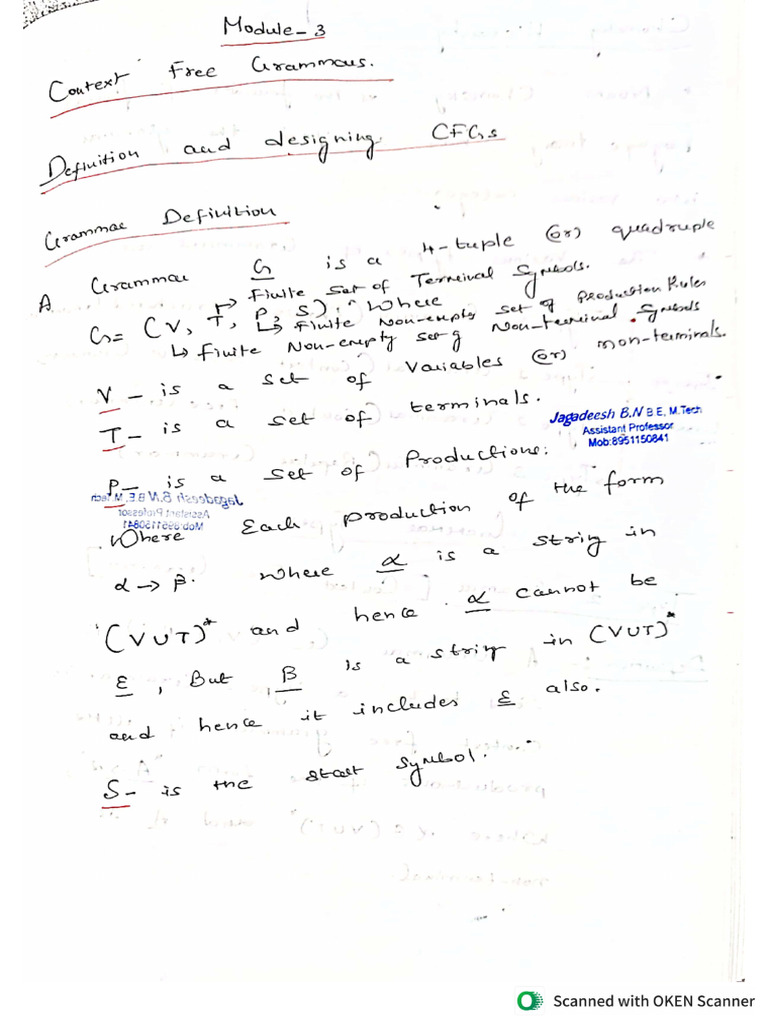 Module-3
Context Free Grammars.
Definition and designing CFGs
Grammar Definition
A Grammar G is a 4-tuple (or) quadruple
↳ Finite Set of Terminal Symbols.
G = (V, T, P, S), Where
↳ Finite Non-empty set of Production Rules
↳ Finite Non-empty set of Non-terminal Symbols
V - is a set of Variables (or) non-terminals.
T - is a set of terminals.
Jagadeesh B.N B.E, M.Tech
Assistant Professor
Mob:8951150841
P - is a set of Productions:
Jagadeesh B.N B.E, M.Tech
Assistant Professor
Mob:8951150841
Where Each production of the form
α → β. Where α is a string in
(V U T)* and hence α cannot be
ε, But β is a string in (VUT)*
and hence it includes ε also.
S - is the start symbol.
Scanned with OKEN Scanner